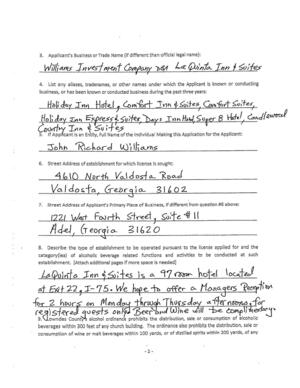 3. Applicant's Business or Trade Name (if different than official legal name):
Williams Investment Company DBA La Quinta Inn & Suites
4. List any aliases, tradenames, or other names under which the Applicant is known or conducting
business, or has been known or conducted business during the past three years:
Holiday Inn Hotel, Comfort Inn & Suites, Comfort Suites,
Holiday Inn Express & Suites, Days Inn Hotel, Super 8 Hotel, Candlewood
Country Inn & Suites
5. If Applicant is an Entity, Full Name of the Individual Making this Application for the Applicant:
John Richard Williams
6. Street Address of establishment for which license is sought:
4610 North Valdosta Road
Valdosta, Georgia 31602
7. Street Address of Applicant's Primary Place of Business, if different from question #6 above:
1221 West Fourth Street, Suite #11
Adel, Georgia 31620
8. Describe the type of establishment to be operated pursuant to the license applied for and the
category(ies) of alcoholic beverage related functions and activities to be conducted at such
establishment: [Attach additional pages if more space is needed]
LaQuinta Inn & Suites is a 97 room hotel located
at Exit 22, I-75. We hope to offer a Managers Reception
for 2 hours on Monday through Thursday afternoons, for
registered guests only. Beer and Wine will be complimentary.
9. Lowndes County's alcohol ordinance prohibits the distribution, sale or consumption of alcoholic
beverages within 300 feet of any church building. The ordinance also prohibits the distribution, sale or
consumption of wine or malt beverages within 100 yards, or of distilled spirits within 200 yards, of any
- 2 -